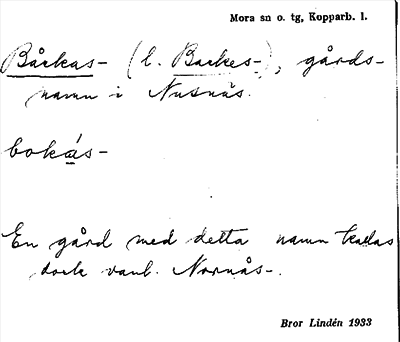 Mora sn o. tg, Kopparb. l.
Bårkas- (l. Backes-), gårds-
namn i Nusnäs.
bokás-
En gård med detta namn kallas
dock vanl. Nornås-.
Bror Lindén 1933